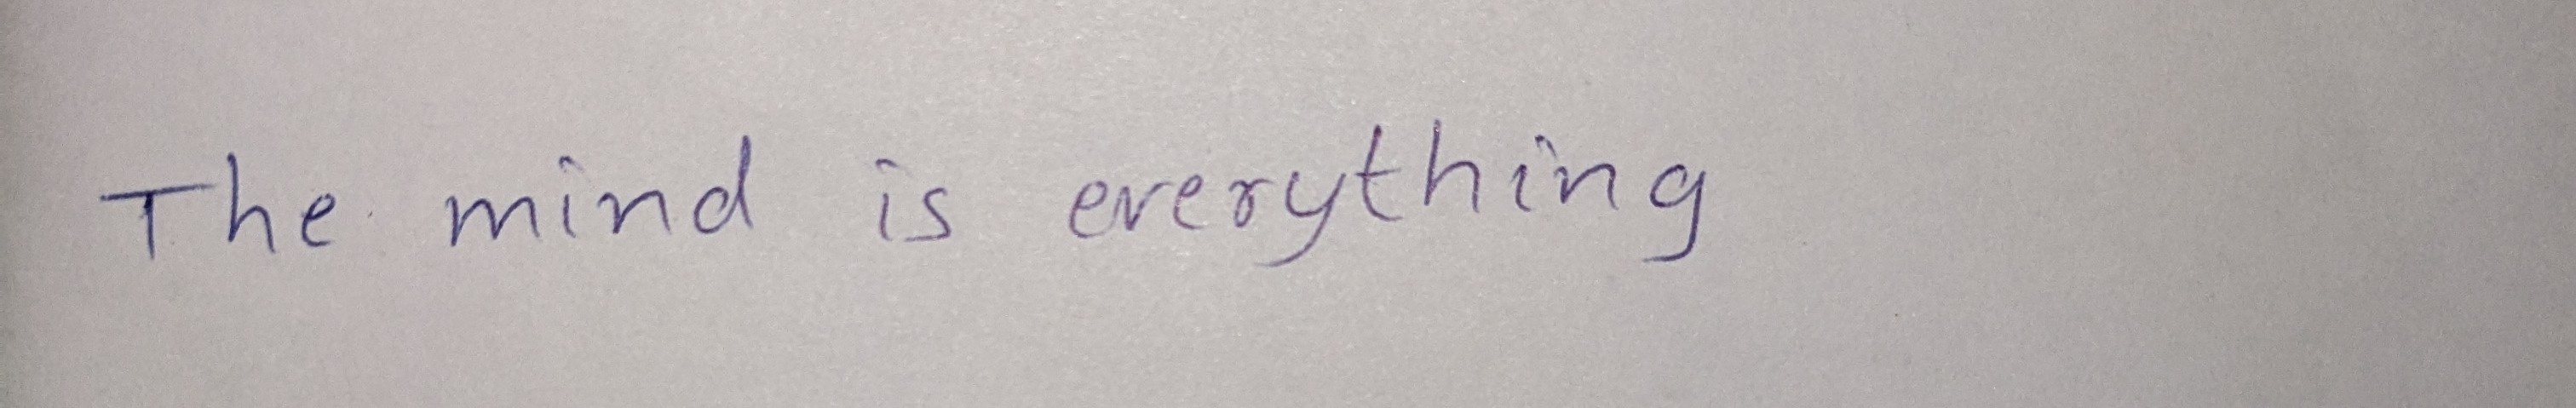 The mind is everything